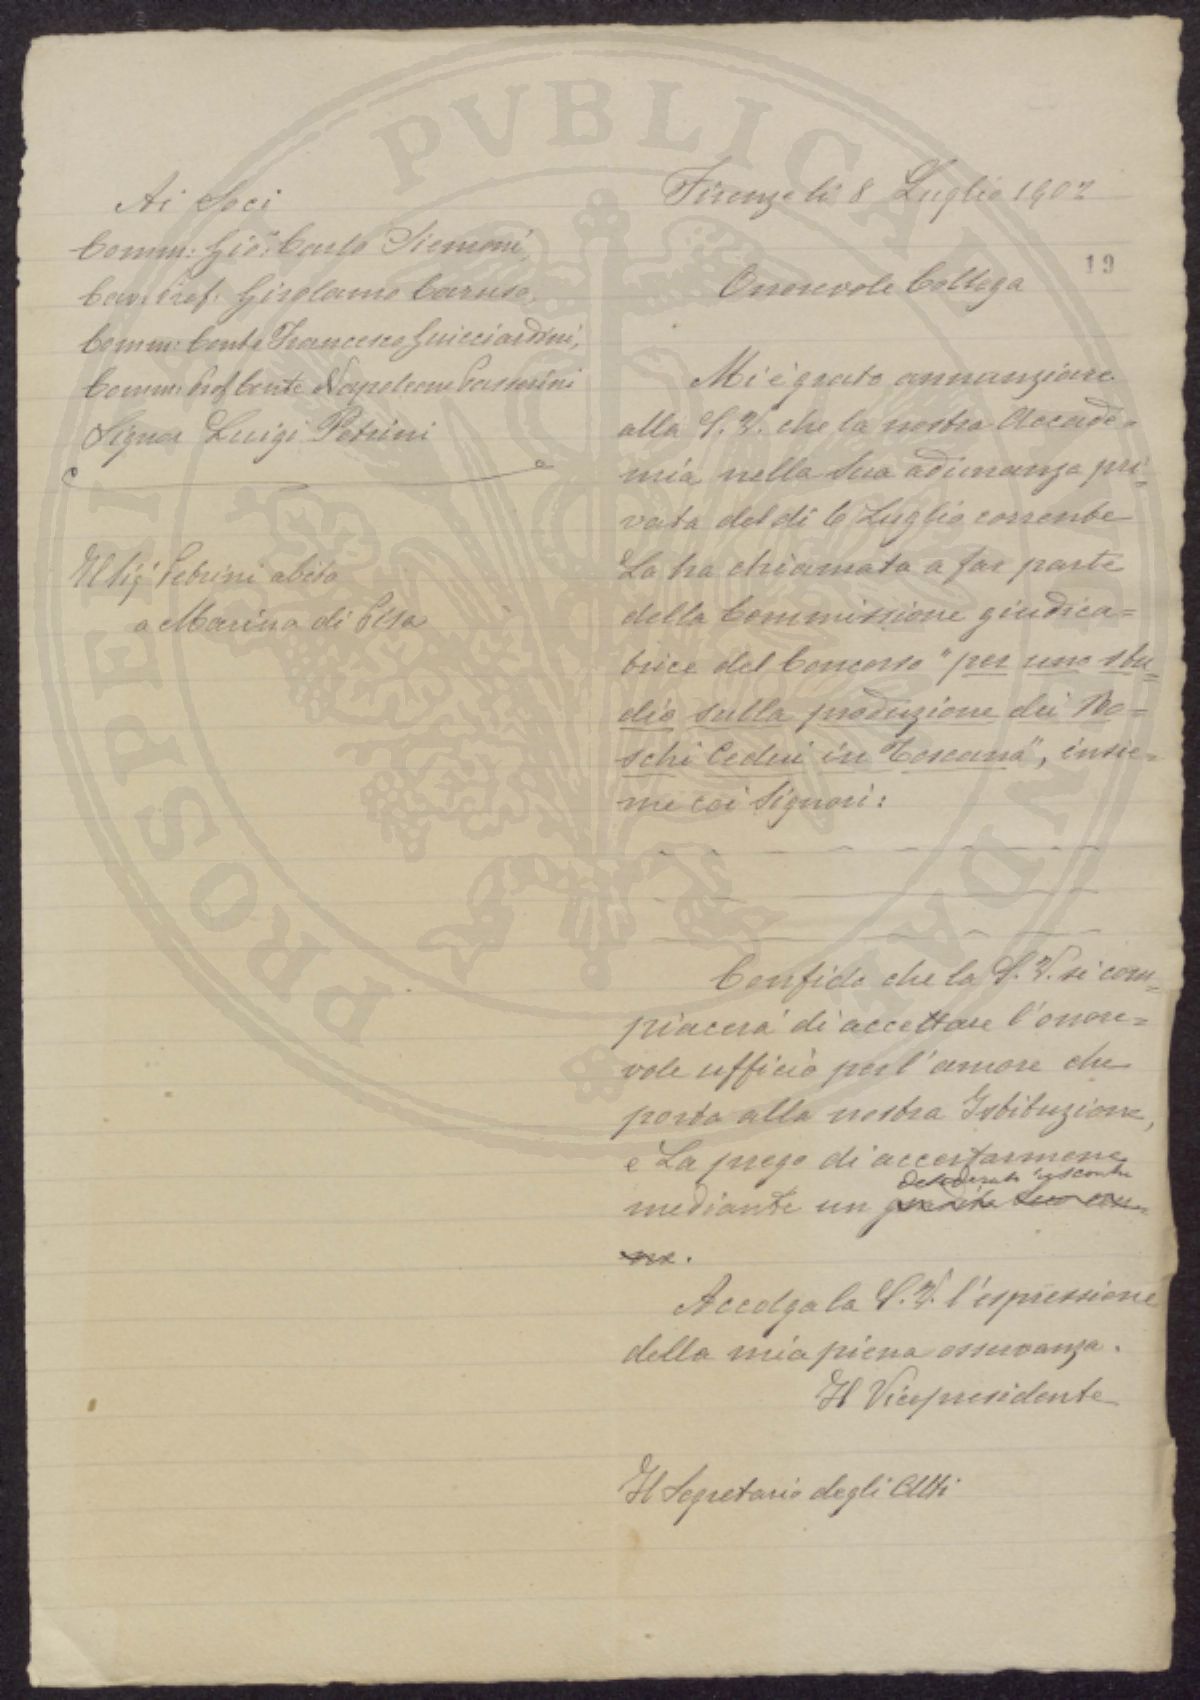 PROSPERITATI PVBLICAE AVGENDAE
Ai Soci
Comm: Gio: Carlo Siemoni,
Cav. Prof. Girolamo Caruso,
Comm: Conte Francesco Guicciardini,
Comm: Prof Conte Napoleone Passerini
Signor Luigi Petrini
Il Sig.r Petrini abita
a Marina di Pisa
Firenze li 8 Luglio 1902
19
Onorevole Collega
Mi è grato annunziare
alla S. V. che la nostra Accade=
mia nella sua adunanza pri=
vata del dì 6 Luglio corrente
La ha chiamata a far parte
della Commissione giudica=
trice del Concorso "per uno stu=
dio sulla produzione dei Bo=
schi Cedui in Toscana", insie=
me coi Signori:
Confido che la S. V. si com=
piacerà di accettare l'onore=
vole ufficio per l'amore che
porta alla nostra Istituzione,
e La prego di accertarmene
desiderato riscontro
mediante un gradito suo
Accolga la S. V. l'espressione
della mia piena osservanza.
Il Vicepresidente
Il Segretario degli Atti